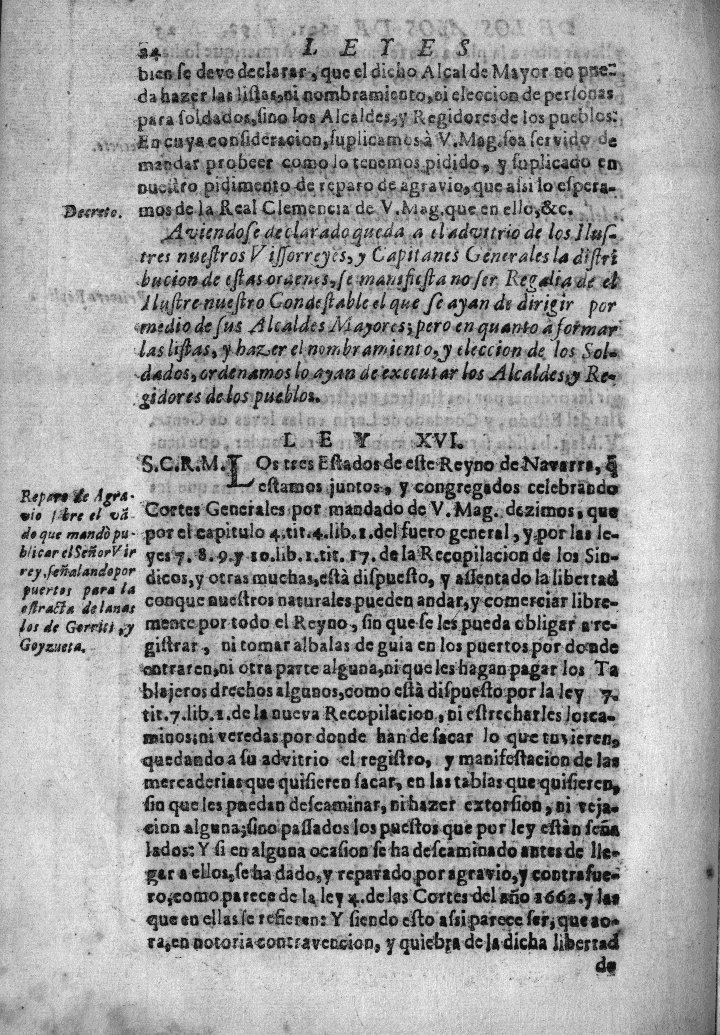 24 L E Y E S
bien se deve declarar, que el dicho Alcalde Mayor no pue-
da hazer las listas, ni nombramiento, ni eleccion de personas
para soldados, sino los Alcaldes, y Regidores de los pueblos:
En cuya consideracion, suplicamos à V. Mag. sea servido de
mandar probeer como lo tenemos pidido, y suplicado en
nuestro pidimento de reparo de agravio, que assi lo espera-
mos de la Real Clemencia de V. Mag. que en ello, &c.
Decreto.
Aviendose declarado queda a el advitrio de los Ilus-
tres nuestros Vissorreyes, y Capitanes Generales la distri
bucion de estas ordenes, se manifiesta no ser Regalia de el
Ilustre nuestro Condestable el que se ayan de dirigir por
medio de sus Alcaldes Mayores; pero en quanto à formar
las listas, y hazer el nombramiento, y eleccion de los Sol-
dados, ordenamos lo ayan de executar los Alcaldes, y Re-
gidores de los pueblos.
L E Y XVI.
S.C.R.M. LOs tres Estados de este Reyno de Navarra, q̃
estamos juntos, y congregados celebrando
Cortes Generales por mandado de V. Mag. dezimos, que
por el capitulo 4. tit. 4. lib. 1. del fuero general, y por las le-
yes 7. 8. 9. y 10. lib. 1. tit. 17. de la Recopilacion de los Sin-
dicos, y otras muchas, està dispuesto, y assentado la libertad
conque nuestros naturales pueden andar, y comerciar libre-
mente por todo el Reyno, sin que se les pueda obligar a re-
gistrar, ni tomar albalas de guia en los puertos por donde
entraren, ni otra parte alguna, ni que les hagan pagar los Ta
blajeros drechos algunos, como està dispuesto por la ley 7.
tit. 7. lib. 1. de la nueva Recopilacion, ni estrecharles los ca-
minos, ni veredas por donde han de sacar lo que tuvieren,
quedando a su advitrio el registro, y manifestacion de las
mercaderias que quisieren sacar, en las tablas que quisieren,
sin que les puedan descaminar, ni hazer extorsion, ni veja-
cion alguna; sino passados los puestos que por ley estàn seña
lados: Y si en alguna ocasion se ha descaminado antes de lle-
gar a ellos, se ha dado, y reparado por agravio, y contrafue-
ro, como parece de la ley 4. de las Cortes del año 1662. y las
que en ellas se refieren: Y siendo esto assi parece ser, que ao-
ra, en notoria contravencion, y quiebra de la dicha libertad
de
Reparo de Agra-
vio sobre el vã-
do que mandò pu-
blicar el Señor Vir
rey, señalando por
puertos para la
estracta de lanas
los de Gorriti, y
Goyzueta.